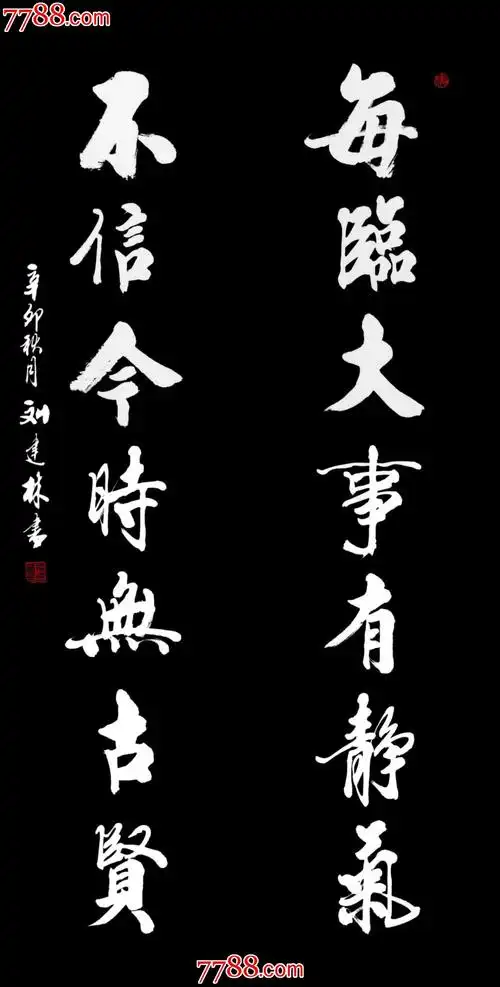 7788.com
每臨大事有静氣
不信今時無古賢
辛卯秋月刘建林書
7788.com